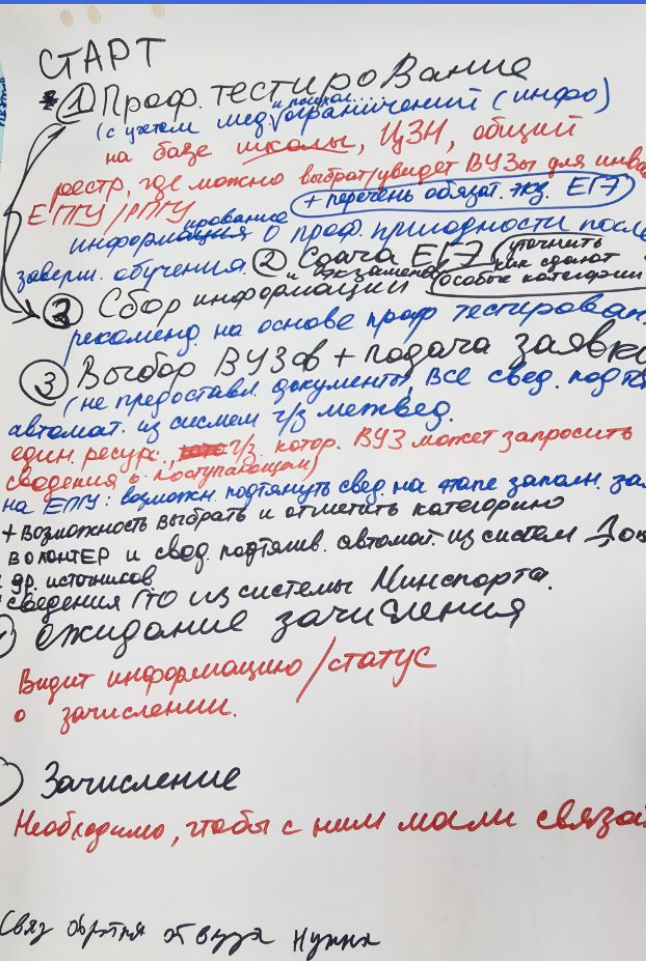 СТАРТ
① Проф. тестирование
(с учетом мед. ограничений (инфо)
на базе школы, ЦЗН, общий
реестр, где можно выбрат/увидет ВУЗы для инва
ЕПГУ/РПГУ + перечень обязат. экз. ЕГЭ
информирование о проф. пригодности после
заверш. обучения. ② Сдача ЕГЭ (уточнить
и экзаменов как сдают
② Сбор информации особые категории
рекоменд. на основе проф тестирован.
③ Выбор ВУЗов + подача заявк
(не предоставл. документы, все свед. подтя
автомат. из систем ч/з межвед.
един. ресурс, ч/з котор. ВУЗ может запросить
сведения о поступающем)
на ЕПГУ: возможн. подтянуть свед. на этапе заполн. за
+ возможность выбрать и отметить категорию
волонтЕР и свед. подтянив. автомат. из систем До
др. источников
сведения ГТО из системы Минспорта.
ожидание зачисления
Видит информацию/статус
о зачислении.
Зачисление
Необходимо, чтобы с ним могли связа
Связ обратня от вуза нужна